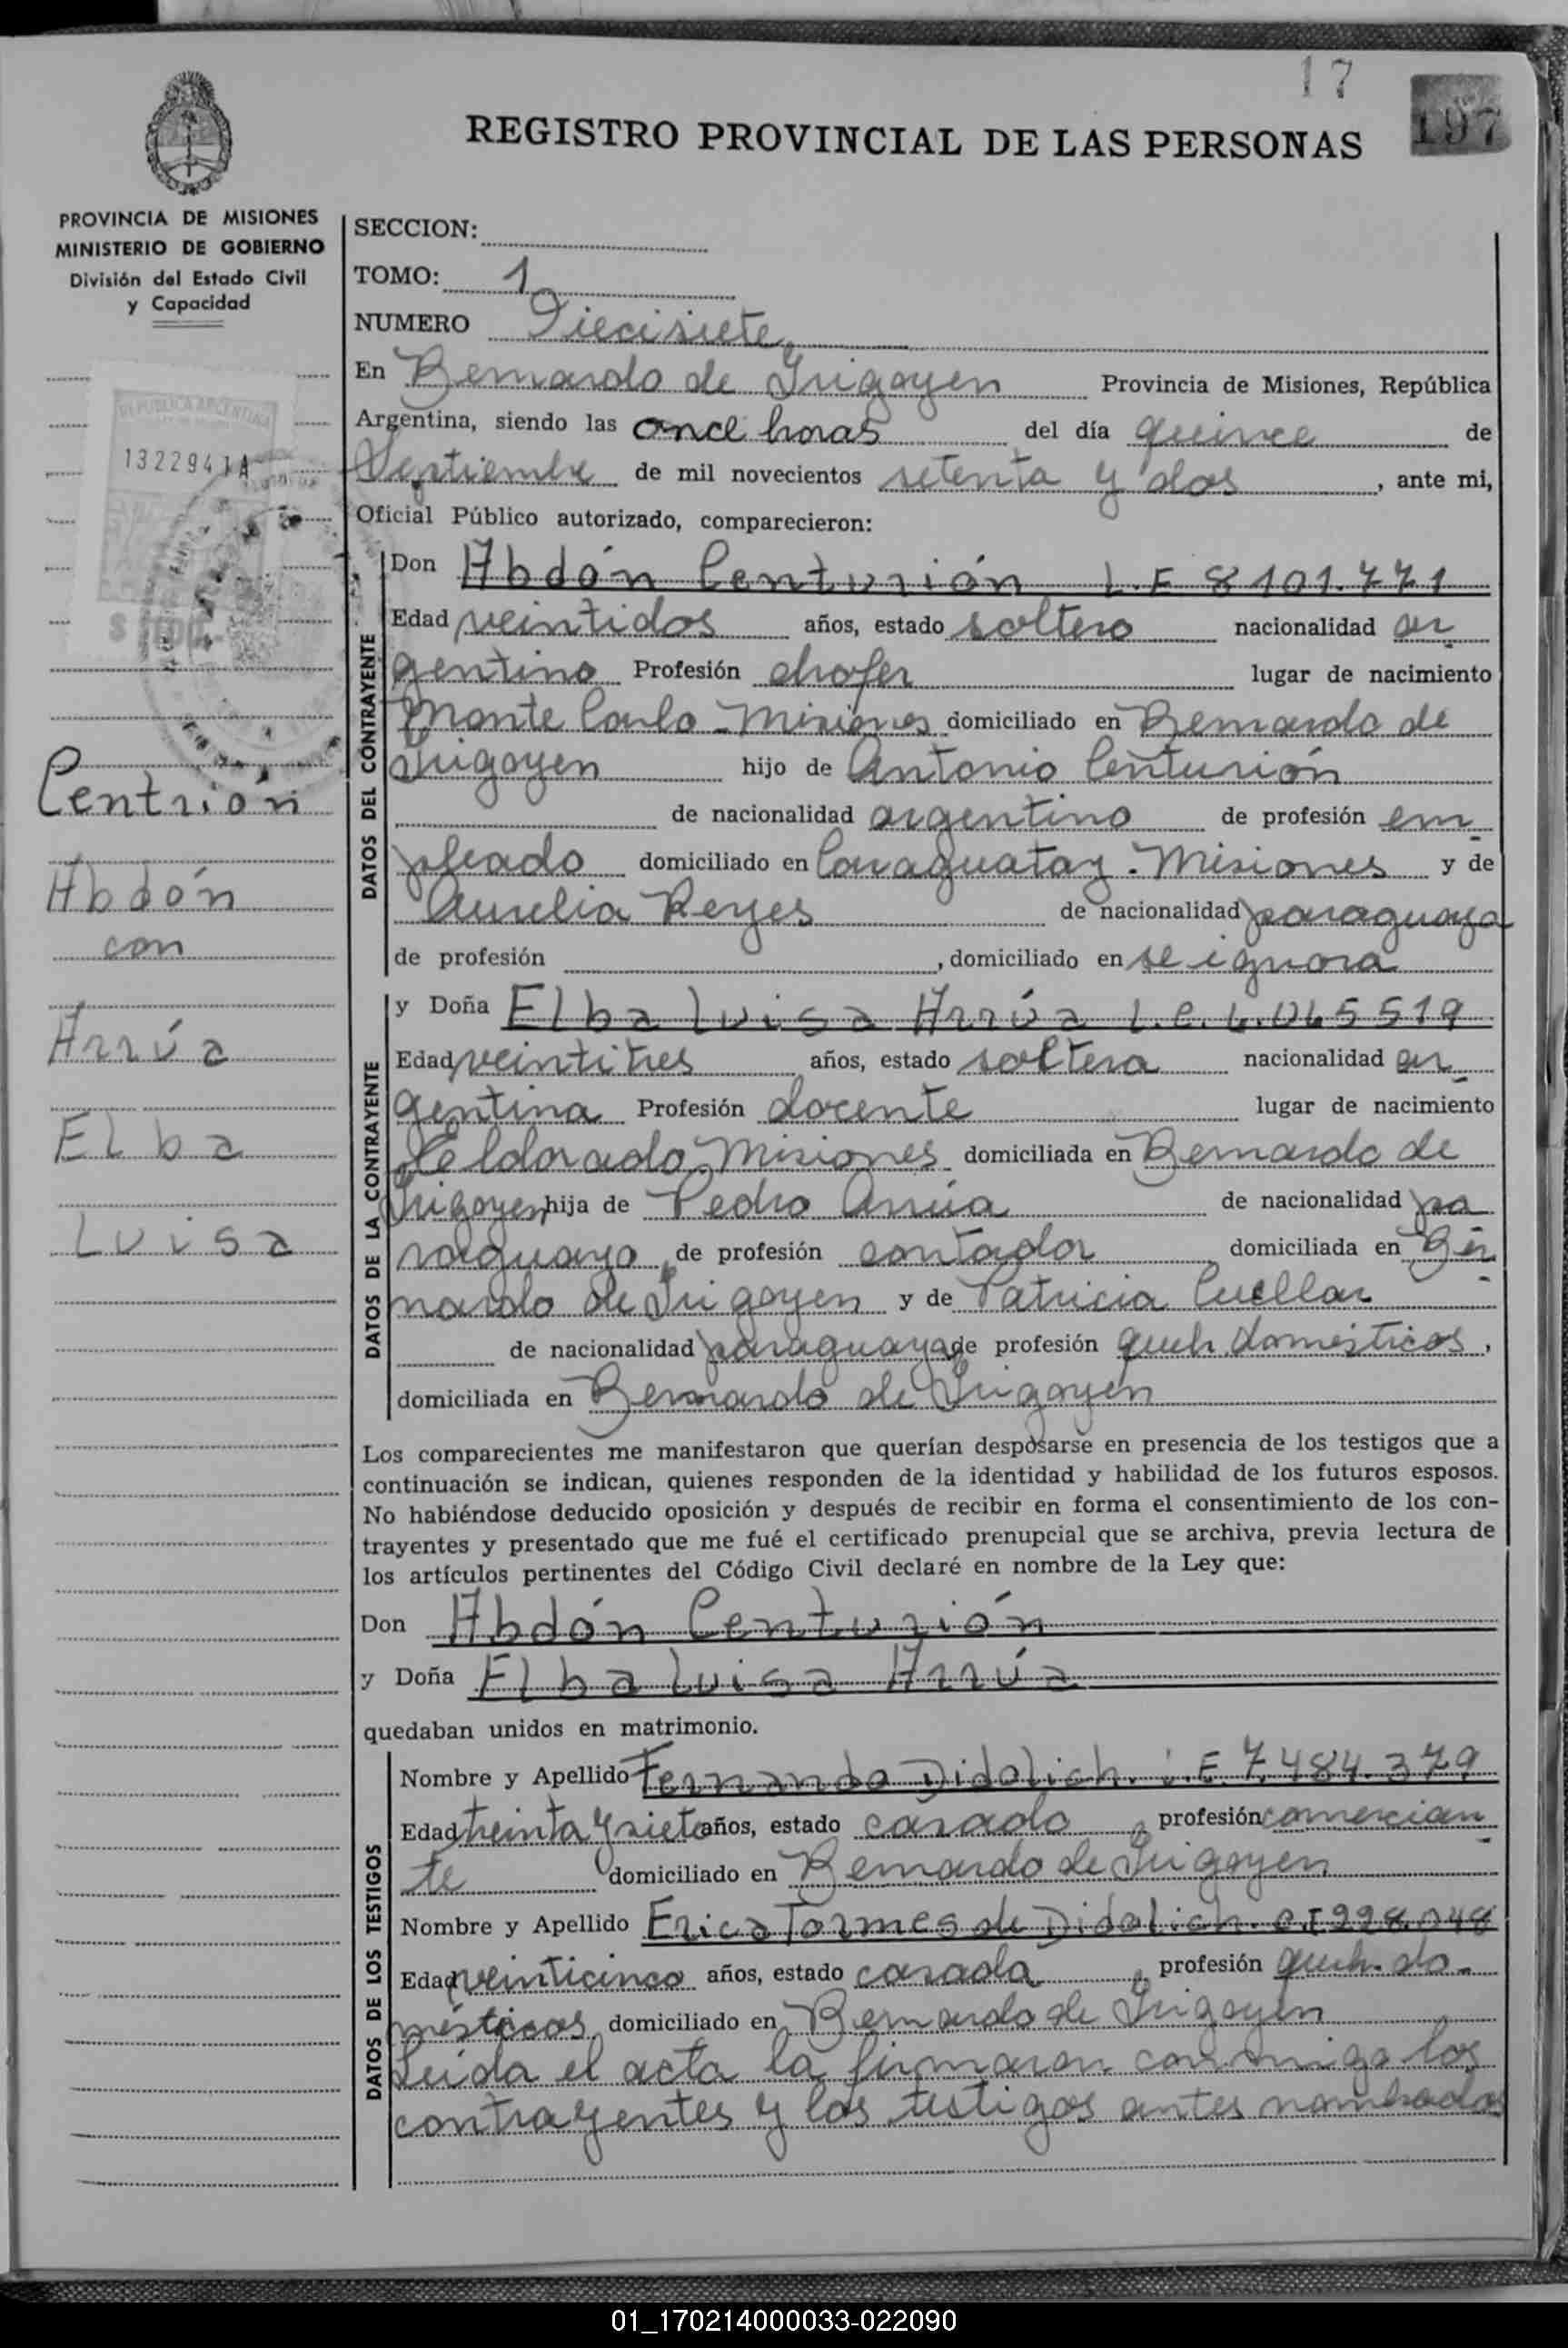 17
197
REGISTRO PROVINCIAL DE LAS PERSONAS
PROVINCIA DE MISIONES
MINISTERIO DE GOBIERNO
División del Estado Civil
y Capacidad
REPUBLICA ARGENTINA
1322941A
Centrión
Abdón
con
Arrúa
Elba
Luisa
SECCION:
TOMO: 1
NUMERO Diecisiete
En Bernardo de Irigoyen Provincia de Misiones, República
Argentina, siendo las once horas del día quince de
Septiembre de mil novecientos setenta y dos, ante mi,
Oficial Público autorizado, comparecieron:
DATOS DEL CONTRAYENTE
Don Abdón Centurión L.E 8101.771
Edad veintidos años, estado soltero nacionalidad ar
gentino Profesión chofer lugar de nacimiento
Monte Carlo - Misiones domiciliado en Bernardo de
Irigoyen hijo de Antonio Centurión
de nacionalidad argentino de profesión em
pleado domiciliado en Caraguatay - Misiones y de
Aurelia Reyes de nacionalidad paraguaya
de profesión , domiciliado en se ignora
DATOS DE LA CONTRAYENTE
y Doña Elba Luisa Arrúa L.C. 6.065519
Edad veintitres años, estado soltera nacionalidad ar
gentina Profesión docente lugar de nacimiento
Eldorado, Misiones domiciliada en Bernardo de
Irigoyen hija de Pedro Arrúa de nacionalidad pa
raguayo de profesión contador domiciliada en Ber
nardo de Irigoyen y de Patricia Cuellar
de nacionalidad paraguaya de profesión queh. domésticos,
domiciliada en Bernardo de Irigoyen
Los comparecientes me manifestaron que querían desposarse en presencia de los testigos que a
continuación se indican, quienes responden de la identidad y habilidad de los futuros esposos.
No habiéndose deducido oposición y después de recibir en forma el consentimiento de los con-
trayentes y presentado que me fué el certificado prenupcial que se archiva, previa lectura de
los artículos pertinentes del Código Civil declaré en nombre de la Ley que:
Don Abdón Centurión
y Doña Elba Luisa Arrúa
quedaban unidos en matrimonio.
DATOS DE LOS TESTIGOS
Nombre y Apellido Fernando Didolich. L.E. 7.484.379
Edad treinta y siete años, estado casado, profesión comercian
te domiciliado en Bernardo de Irigoyen
Nombre y Apellido Erica Tormes de Didolich. C.I 998.048
Edad veinticinco años, estado casada, profesión queh. do-
mésticos, domiciliado en Bernardo de Irigoyen
Leída el acta la firmaron conmigo los
contrayentes y los testigos antes nombrados
01_170214000033-022090